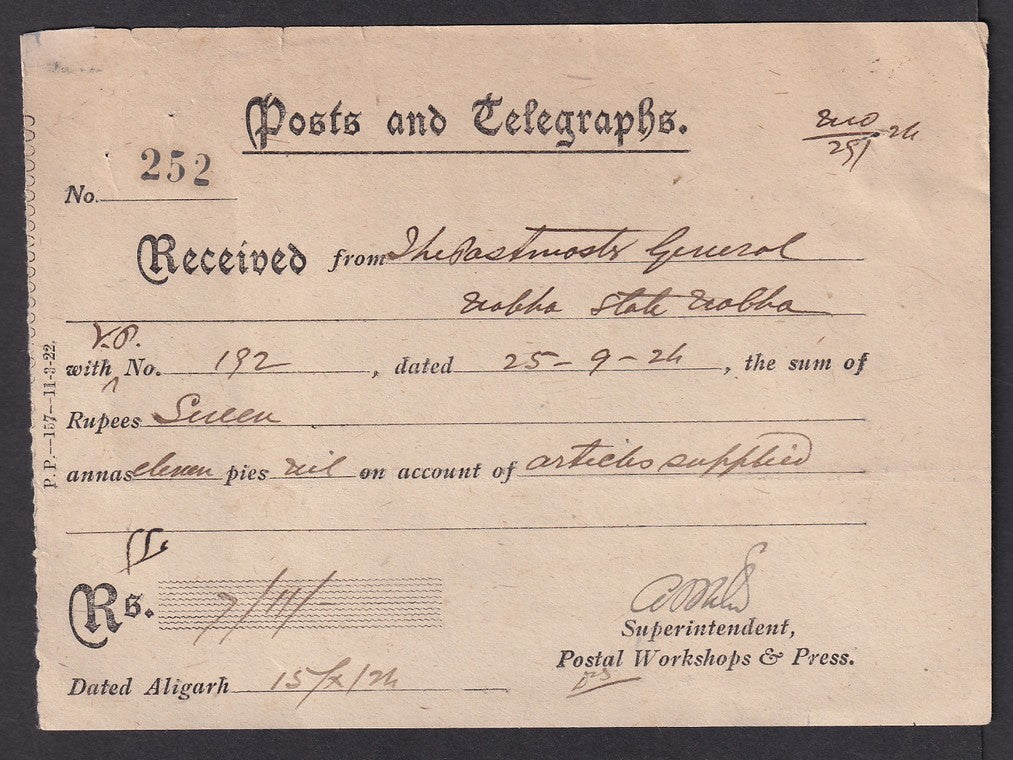 Posts and Telegraphs.
No. 252
Received from The Postmaster General
Nabha State Nabha
V.P.
with No. 192, dated 25-9-24, the sum of
Rupees Seven
annas eleven pies nil on account of articles supplied
Rs. 7/11/-
Superintendent,
Postal Workshops & Press.
Dated Aligarh 15/x/24
P. P.—157—11-3-22.